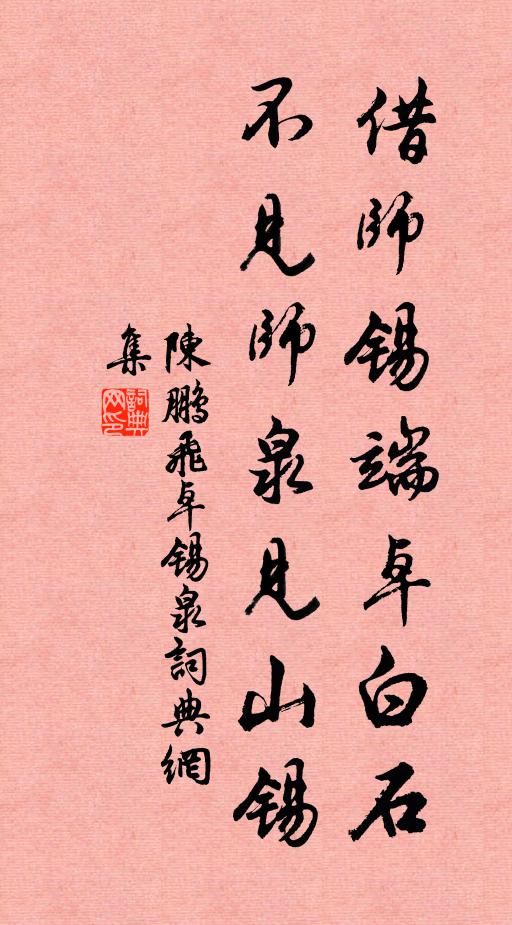 借師錫端卓白石
不見師泉見山錫
陳鵬飛卓錫泉詞典網
集
詞典网印